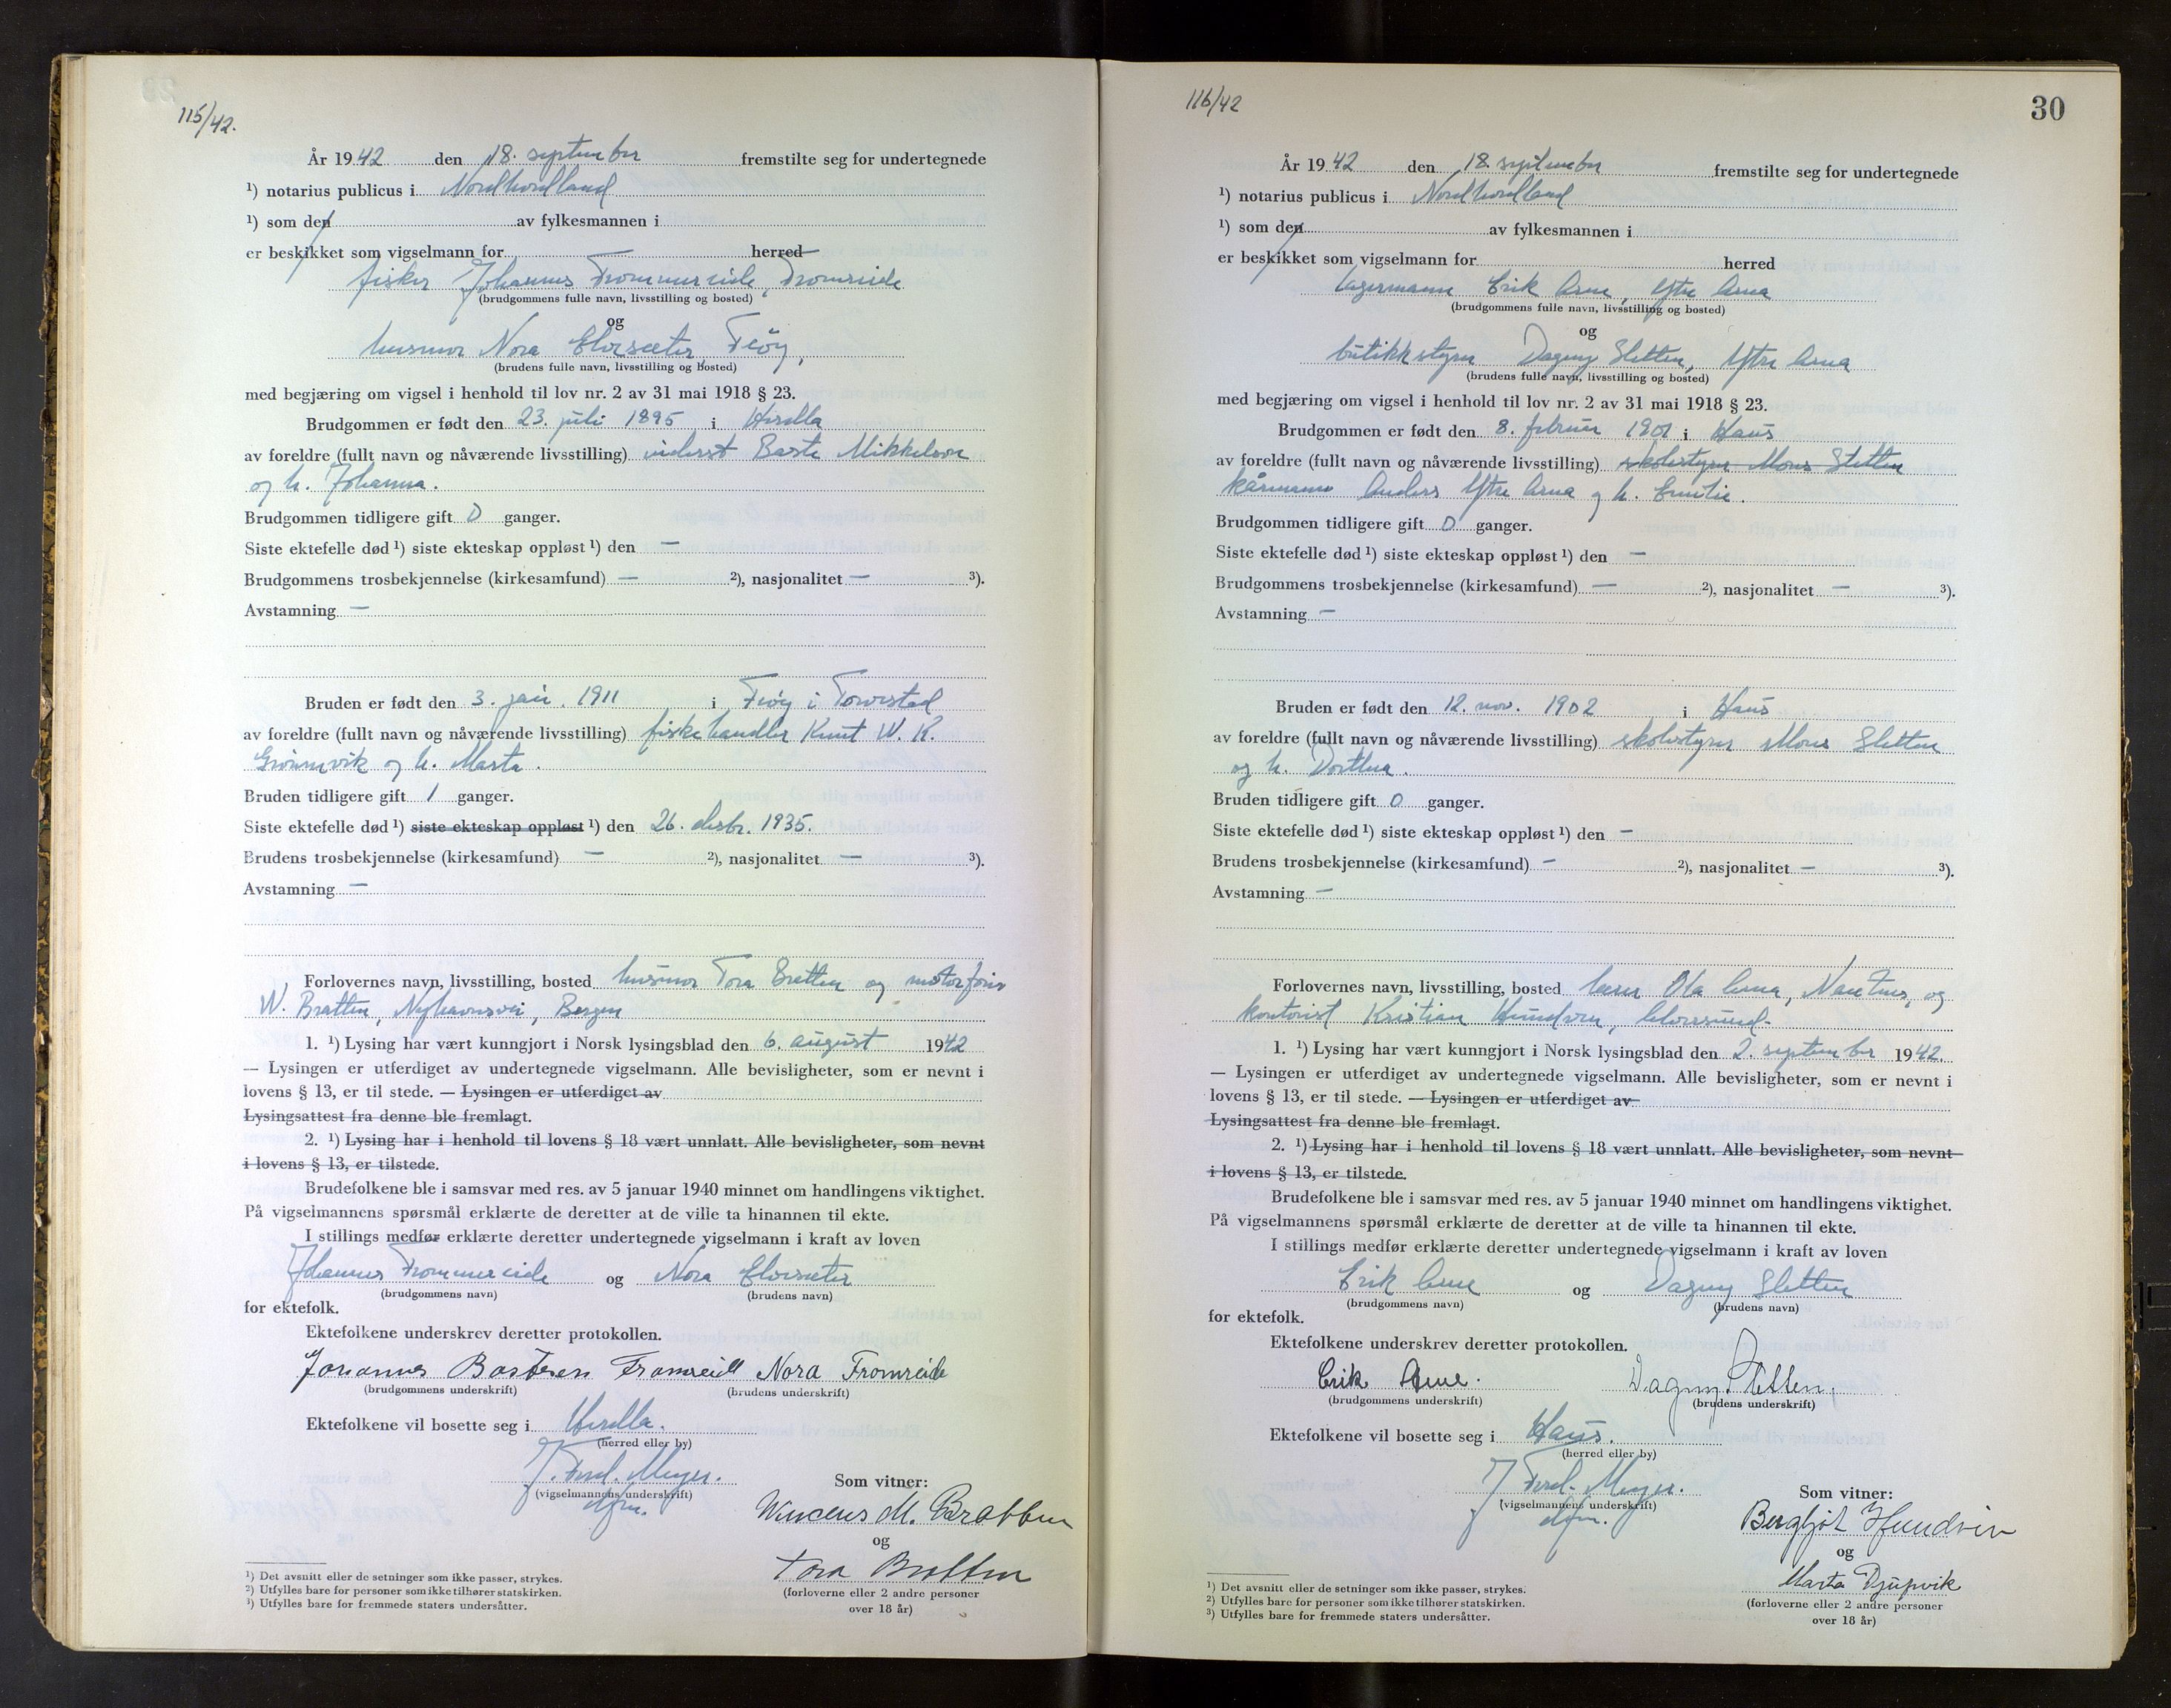 115/42.
År 1942 den 18. september fremstilte seg for undertegnede
¹) notarius publicus i Nordhordland
¹) som den av fylkesmannen i
er beskikket som vigselmann for herred
fisker Johannes Frommereide, Fromreide
(brudgommens fulle navn, livsstilling og bosted)
og
husmor Nora Elvesæter, Feøy,
(brudens fulle navn, livsstilling og bosted)
med begjæring om vigsel i henhold til lov nr. 2 av 31 mai 1918 § 23.
Brudgommen er født den 23. juli 1895 i Herdla
av foreldre (fullt navn og nåværende livsstilling) inderst Baste Mikkelsen
og h. Johanna.
Brudgommen tidligere gift 0 ganger.
Siste ektefelle død ¹) siste ekteskap oppløst ¹) den —
Brudgommens trosbekjennelse (kirkesamfund) — ²), nasjonalitet — ³).
Avstamning —
Bruden er født den 3. jan. 1911 i Feøy i Torvestad
av foreldre (fullt navn og nåværende livsstilling) fiskehandler Knut W. K.
Grønnvik og h. Marta.
Bruden tidligere gift 1 ganger.
Siste ektefelle død ¹) siste ekteskap oppløst ¹) den 26. desbr. 1935.
Brudens trosbekjennelse (kirkesamfund) — ²), nasjonalitet — ³).
Avstamning —
Forlovernes navn, livsstilling, bosted husmor Tora Bratten og motorfører
W. Bratten, Nyhavnsvei, Bergen
1. ¹) Lysing har vært kunngjort i Norsk lysingsblad den 6. august 1942
— Lysingen er utferdiget av undertegnede vigselmann. Alle bevisligheter, som er nevnt i
lovens § 13, er til stede. — Lysingen er utferdiget av
Lysingsattest fra denne ble fremlagt.
2. ¹) Lysing har i henhold til lovens § 18 vært unnlatt. Alle bevisligheter, som nevnt
i lovens § 13, er tilstede.
Brudefolkene ble i samsvar med res. av 5 januar 1940 minnet om handlingens viktighet.
På vigselmannens spørsmål erklærte de deretter at de ville ta hinannen til ekte.
I stillings medfør erklærte deretter undertegnede vigselmann i kraft av loven
Johannes Frommereide og Nora Elvesæter
(brudgommens navn) (brudens navn)
for ektefolk.
Ektefolkene underskrev deretter protokollen.
Johannes Bastesen Fromreide Nora Fromreide
(brudgommens underskrift) (brudens underskrift)
Ektefolkene vil bosette seg i Herdla.
(herred eller by)
J. Ferd. Meyer.
(vigselmannens underskrift)
dfm.
Som vitner:
Wincens M. Bratten
og
Tora Bratten
(forloverne eller 2 andre personer
over 18 år)
¹) Det avsnitt eller de setninger som ikke passer, strykes.
²) Utfylles bare for personer som ikke tilhører statskirken.
³) Utfylles bare for fremmede staters undersåtter.
116/42
30
År 1942 den 18. september fremstilte seg for undertegnede
¹) notarius publicus i Nordhordland
¹) som den av fylkesmannen i
er beskikket som vigselmann for herred
lagermann Erik Arne, Ytre Arna
(brudgommens fulle navn, livsstilling og bosted)
og
butikkstyrer Dagny Sletten, Ytre Arna
(brudens fulle navn, livsstilling og bosted)
med begjæring om vigsel i henhold til lov nr. 2 av 31 mai 1918 § 23.
Brudgommen er født den 8. februar 1901 i Haus
av foreldre (fullt navn og nåværende livsstilling) skolestyrer Mons Sletten
kårmann Anders Ytre Arna og h. Emilie.
Brudgommen tidligere gift 0 ganger.
Siste ektefelle død ¹) siste ekteskap oppløst ¹) den —
Brudgommens trosbekjennelse (kirkesamfund) — ²), nasjonalitet — ³).
Avstamning —
Bruden er født den 12. nov. 1902 i Haus
av foreldre (fullt navn og nåværende livsstilling) skolestyrer Mons Sletten
og h. Dorthea.
Bruden tidligere gift 0 ganger.
Siste ektefelle død ¹) siste ekteskap oppløst ¹) den —
Brudens trosbekjennelse (kirkesamfund) — ²), nasjonalitet — ³).
Avstamning —
Forlovernes navn, livsstilling, bosted lærer Ola Arna, Næstus, og
kontorist Kristian Hundven, Alversund.
1. ¹) Lysing har vært kunngjort i Norsk lysingsblad den 2. september 1942.
— Lysingen er utferdiget av undertegnede vigselmann. Alle bevisligheter, som er nevnt i
lovens § 13, er til stede. — Lysingen er utferdiget av
Lysingsattest fra denne ble fremlagt.
2. ¹) Lysing har i henhold til lovens § 18 vært unnlatt. Alle bevisligheter, som nevnt
i lovens § 13, er tilstede.
Brudefolkene ble i samsvar med res. av 5 januar 1940 minnet om handlingens viktighet.
På vigselmannens spørsmål erklærte de deretter at de ville ta hinannen til ekte.
I stillings medfør erklærte deretter undertegnede vigselmann i kraft av loven
Erik Arne og Dagny Sletten
(brudgommens navn) (brudens navn)
for ektefolk.
Ektefolkene underskrev deretter protokollen.
Erik Arne. Dagny Sletten.
(brudgommens underskrift) (brudens underskrift)
Ektefolkene vil bosette seg i Haus.
(herred eller by)
J. Ferd. Meyer.
(vigselmannens underskrift)
dfm.
Som vitner:
Bergljot Hundvin
og
Marta Djupvik
(forloverne eller 2 andre personer
over 18 år)
¹) Det avsnitt eller de setninger som ikke passer, strykes.
²) Utfylles bare for personer som ikke tilhører statskirken.
³) Utfylles bare for fremmede staters undersåtter.